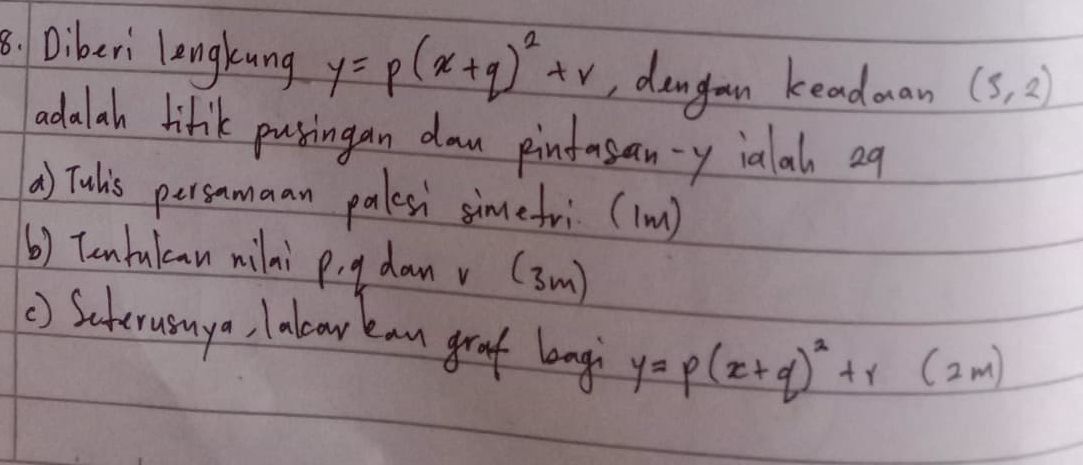 8. Diberi lengkung y = p(x+q)² + r, dengan keadaan (5,2)
adalah titik pusingan dan pintasan-y ialah 29
a) Tulis persamaan paksi simetri. (1m)
b) Tentukan nilai p, q dan r (3m)
c) Seterusnya, lakarkan graf bagi y = p(x+q)² + r (2m)